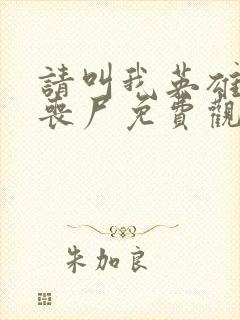 請叫我英雄
喪尸免費觀
朱加良